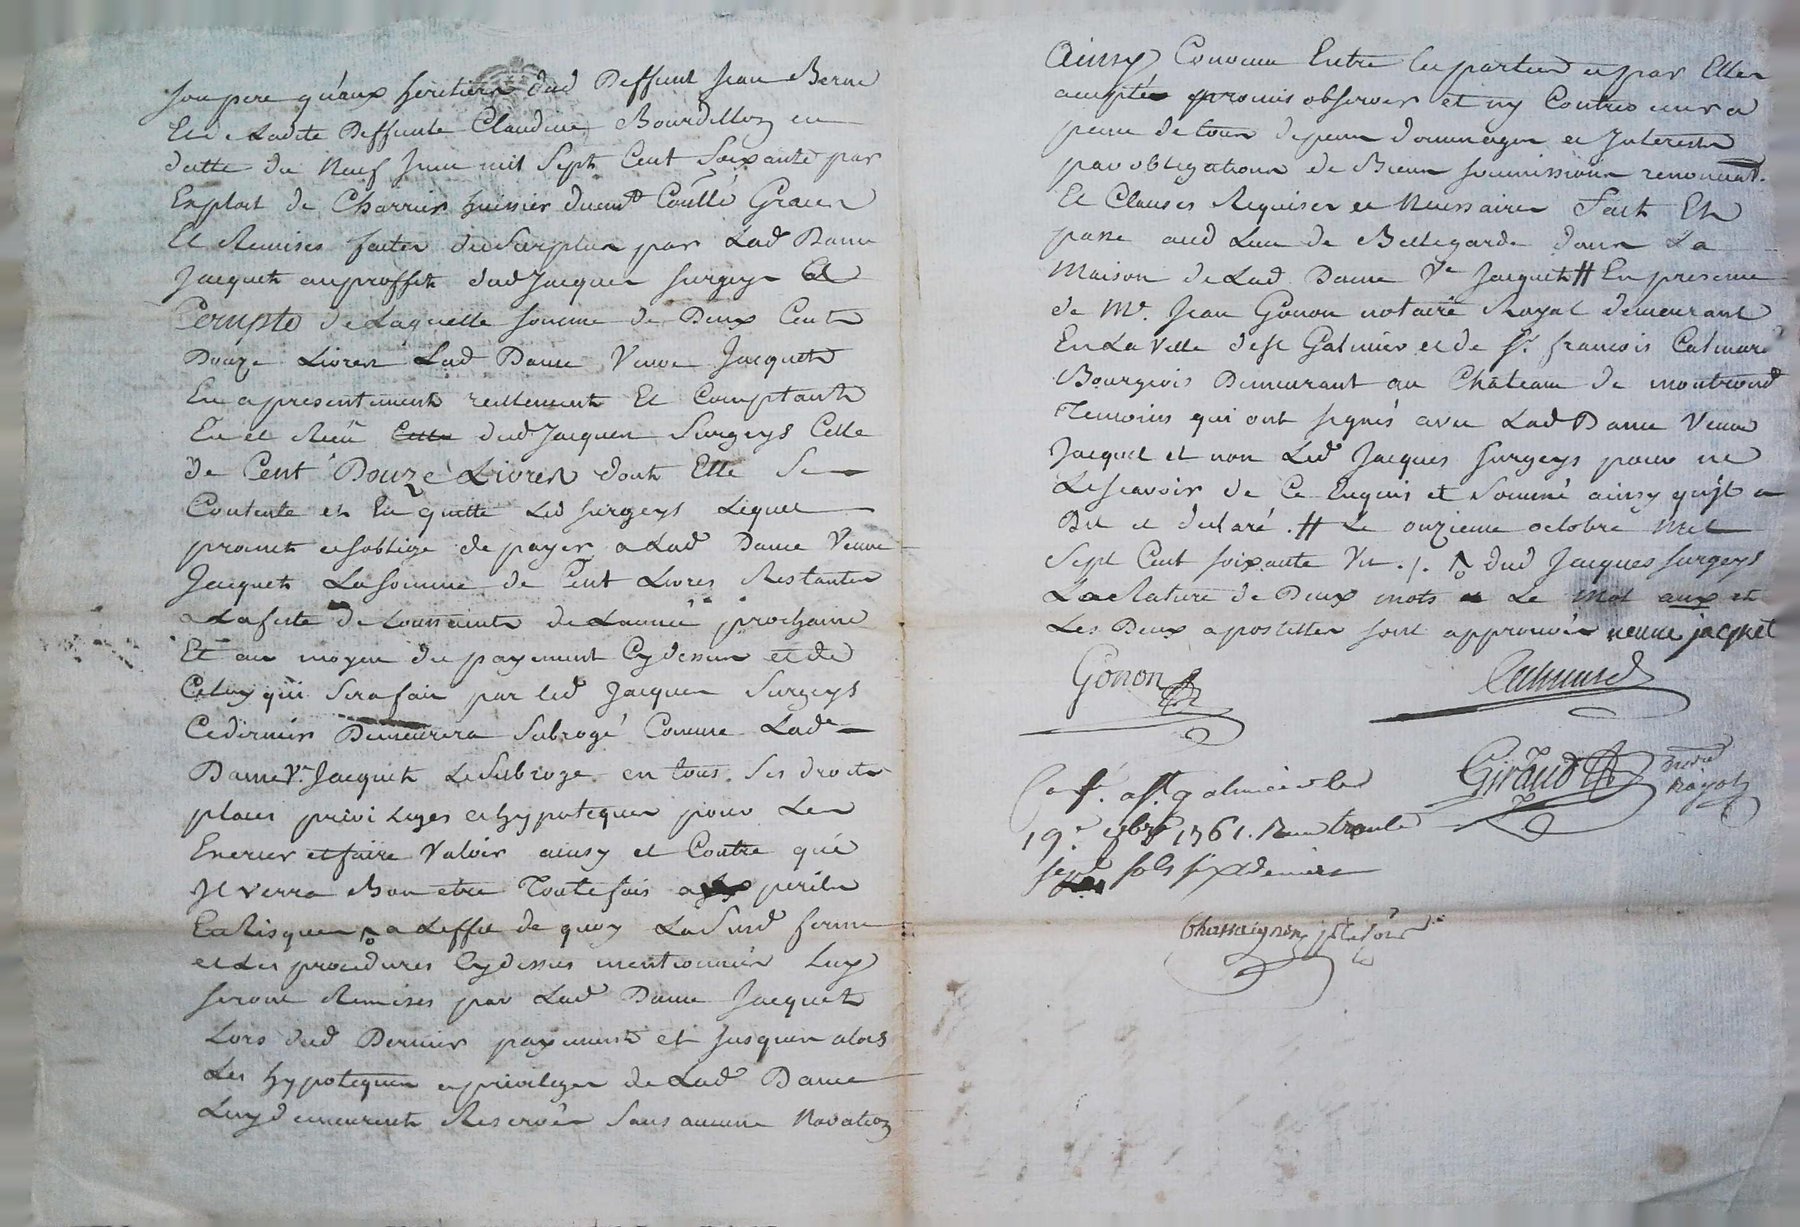 son pere qu'aux heritiers dud Deffunt Jean Berne
Et de Ladite Deffunte Claudine Bourdillon en
datte du Neuf Juin mil Sept Cent Soixante par
Exploit de Charrier huissier Graces
Et Remises faites du Surplus par Lad Dame
Jacquet au proffit dud Jacques Surgeys A
Compte de Laquelle somme de Deux Cent
Douze Livres Lad Dame Veuve Jacquet
En a presentement reellement Et Comptant
Eu et Receu dud Jacques Surgeys Celle
de Cent Douze Livres dont Elle Se
Contente et En quitte Led Surgeys Lequel
promet et soblige de payer a Lad Dame Veuve
Jacquet La somme de Cent Livres Restantes
a La feste de Toussaints de Lannée prochaine
Et au moyen du payement Cydessus et de
Celuy qui Sera fait par led Jacques Surgeys
Ce dernier Demeurera Subrogé Comme Lade
Dame Ve Jacquet Le Subroge en tous Ses droits
places privileges et hypoteques pour Les
Exercer et faire Valoir ainsy et Contre qui
Il verra Bon etre Toutefois a perils
Et Risques a Leffet de quoy La Susd ferme
et Les procedures Cydessus mentionnées Luy
seront Remises par Lad Dame Jacquet
Lors dud Dernier payement et Jusques alors
Les hypoteques et privileges de Lad Dame
Luy demeurent Reservés Sans aucune Novation
Ainsy Convenu Entre les parties et par Elles
accepté promis observer et ny Contrevenir a
peine de tous depens dommages et Interests
par obligations de Biens soumissions renonciat.
Et Clauses Requises et Necessaires Fait Et
passé aud Lieu de Bellegarde dans La
Maison de Lad Dame Ve Jacquet # En presence
de Me. Jean Gonon notaire Royal demeurant
En La Ville de St Galmier et de Sr. francois Calmard
Bourgeois Demeurant au Château de montrond
Temoins qui ont signés avec Lad Dame Veuve
Jacquet et non Led Jacques Surgeys pour ne
Le scavoir de Ce Enquis et Sommé ainsy qu'jl a
Dit et declaré . # Le onzieme octobre Mil
Sept Cent soixante Un ./. dud Jacques Surgeys
La Rature de Deux mots Le mot aux et
Les Deux apostilles sont approuvés veuve jacquet
Gonon
Calmard
Giraud
notre
Royal
Con. a St. galmier le
19e 8bre 1761. Recu trente
sept sols six deniers